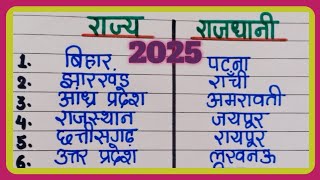 राज्य राजधानी
2025
1. बिहार पटना
2. झारखंड राँची
3. आंध्र प्रदेश अमरावती
4. राजस्थान जयपूर
5. छत्तीसगढ़ रायपूर
6. उत्तर प्रदेश लखनऊ